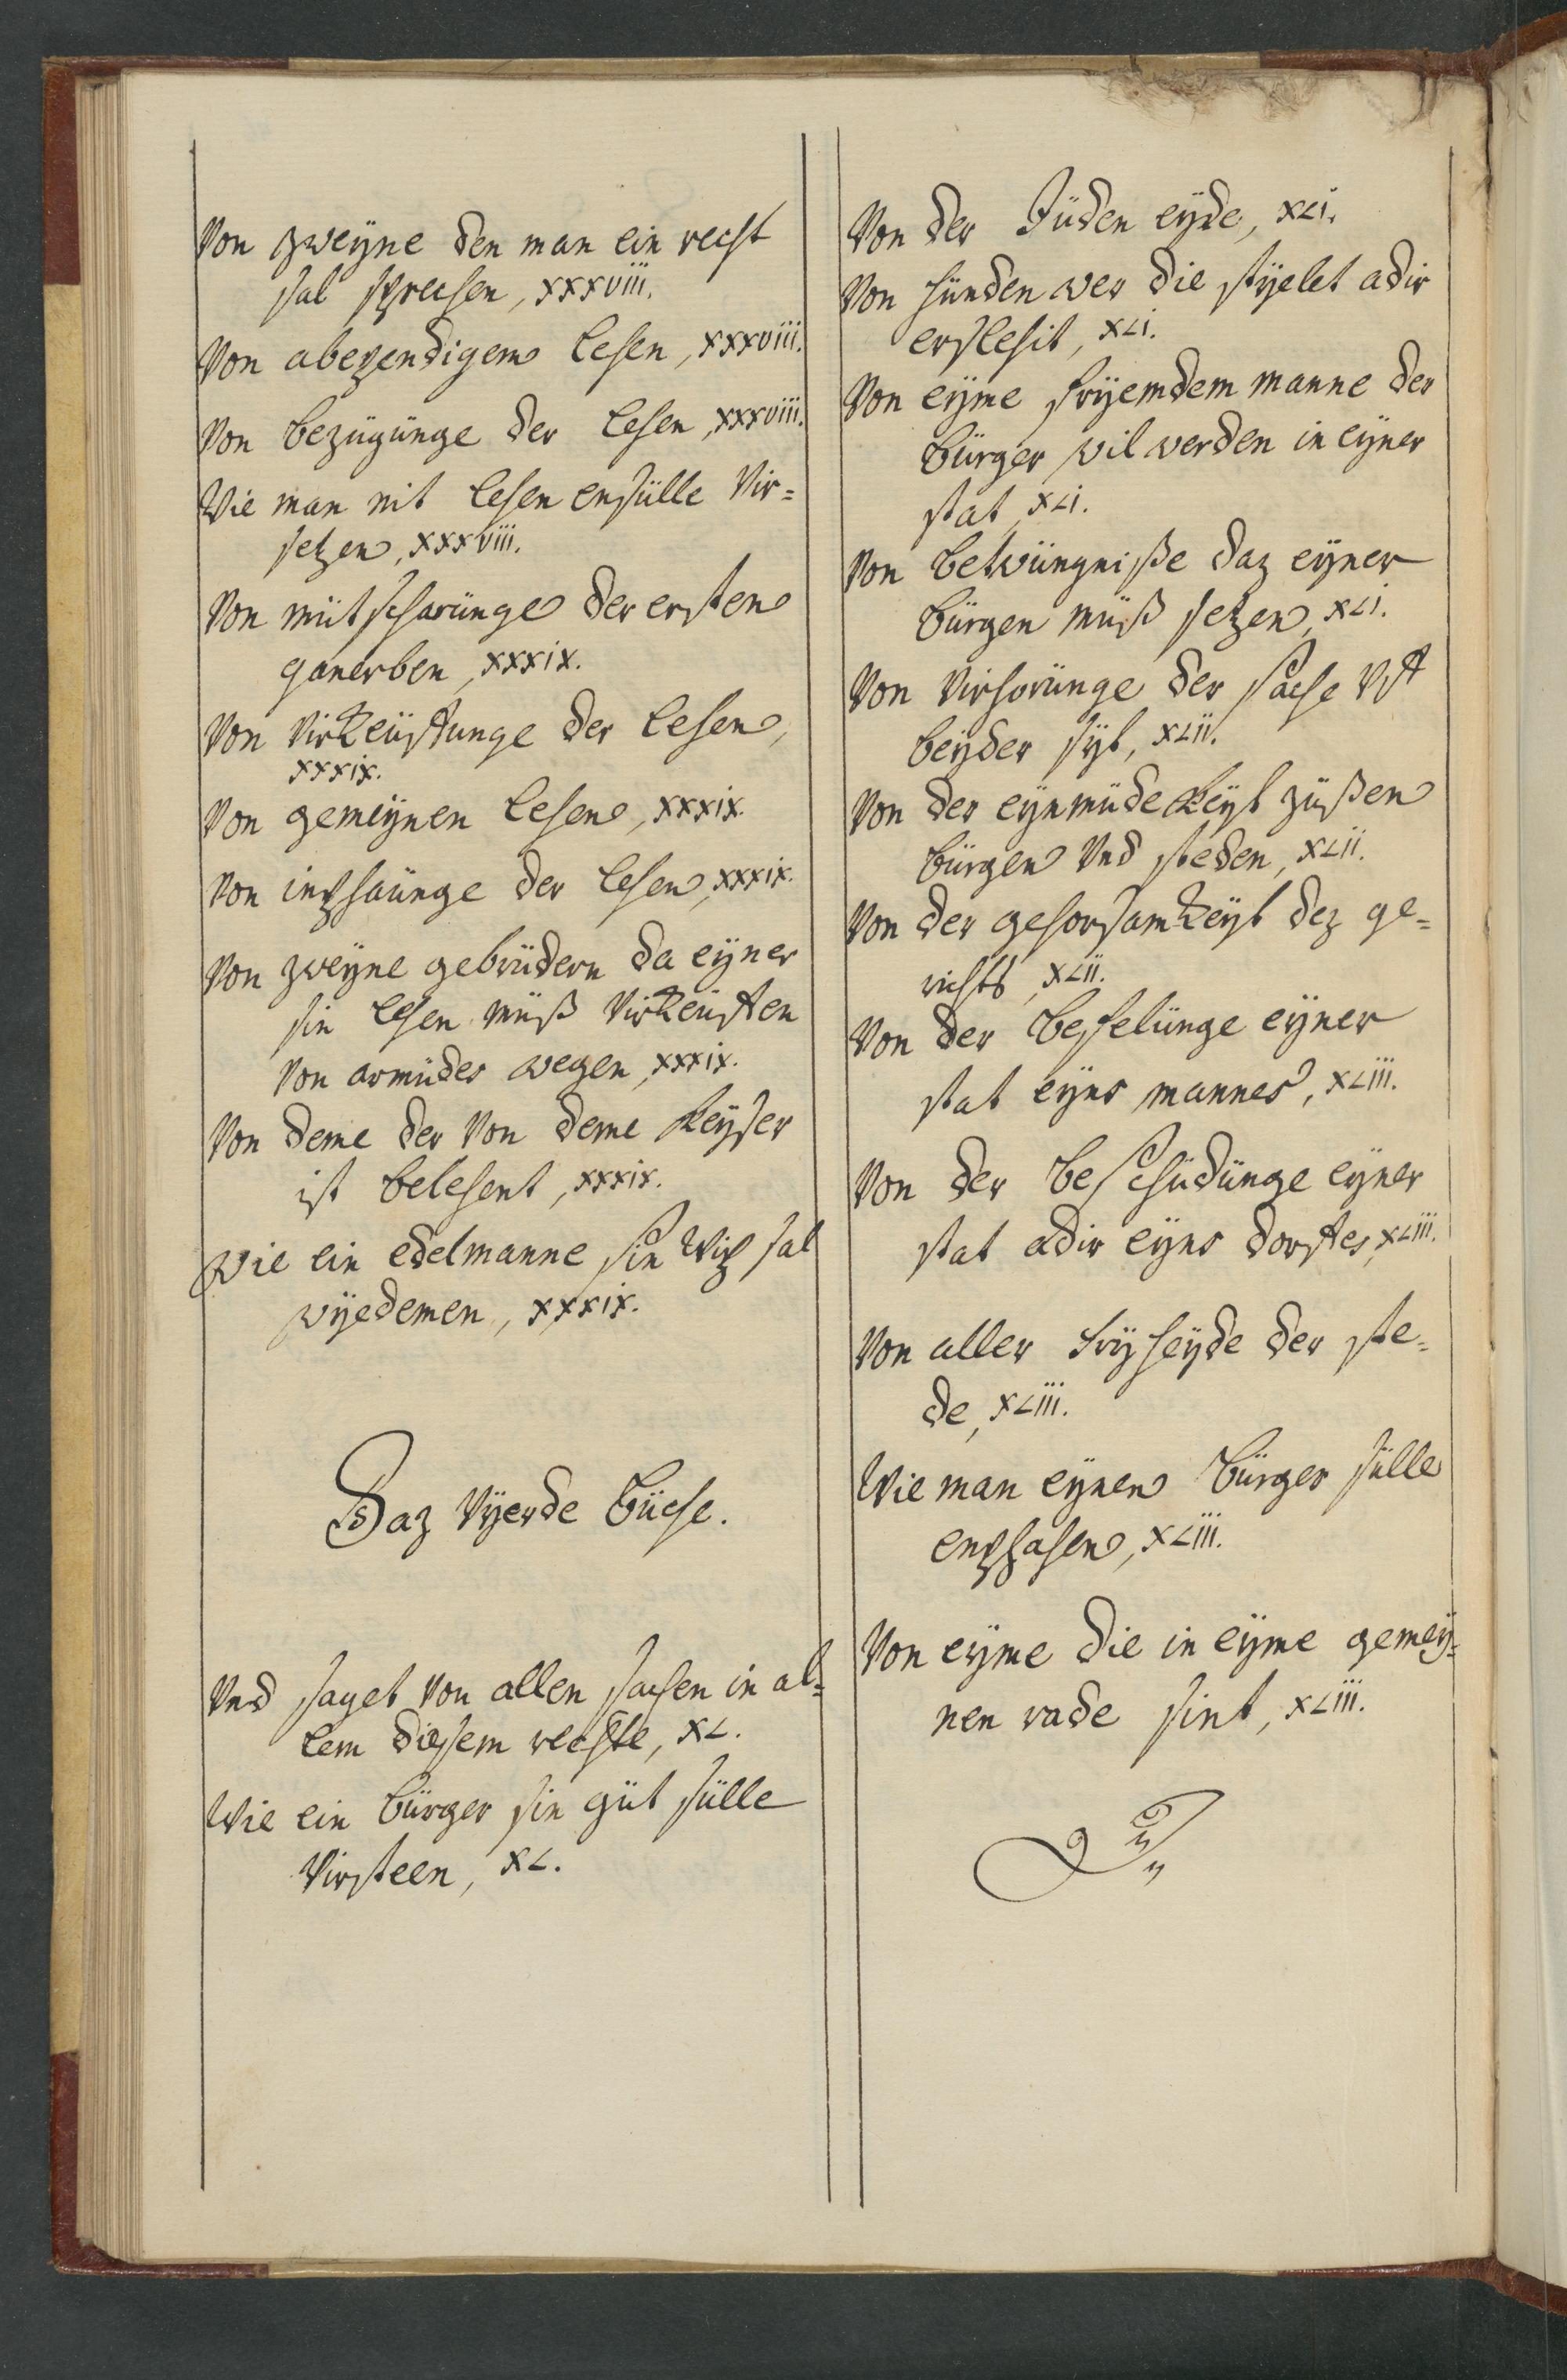 Von zweÿne den man ein recht
sal sprechen, xxxviii.
Von abezendigem lehen, xxxviii.
Von bezügünge der lehen, xxxviii.
Wie man nit lehen ensülle Vir=
setzen, xxxviii.
Von mütscharünge der ersten
ganerben, xxxix.
Von Virkeüffunge der lehen,
xxxix.
Von gemeÿnen lehen, xxxix.
Von inphaünge der lehen, xxxix.
Von zweÿne gebrüdern da eÿner
sin lehen müß Virkeüffen
Von armüdes wegen, xxxix.
Von deme der Von deme Keÿser
ist belehent, xxxix.
Wie ein edelmanne sin Wip sal
wÿedemen, xxxix.
Daz Vÿerde büche.
Vnd saget Von allen sachen in al=
lem diesem rechte, xL.
Wie ein bürger sin güt sülle
Virsteen, xL.
Von der Jüden eÿde, xLi.
Von hünden wer die stÿelet adir
erslehit, xLi.
Von eÿme frÿemdem manne der
bürger wil werden in eÿner
stat, xLi.
Von betwüngniße daz eÿner
bürgen müß setzen, xLi.
Von Virhorünge der sache Vff
beÿder sÿt, xLii.
Von der eÿnmüdekeÿt züßen
bürgen Vnd steden, xLii.
Von der gehorsamkeÿt dez ge=
richts, xLii.
Von der beheltünge eÿner
stat eÿns mannes, xLiii.
Von der beschüdünge eÿner
stat adir eÿns dorffes, xLiii.
Von aller frÿheÿde der ste=
de, xLiii.
Wie man eÿnen bürger sülle
enphahen, xLiii.
Von eÿme die in eÿme gemeÿ=
nen rade sint, xLiii.